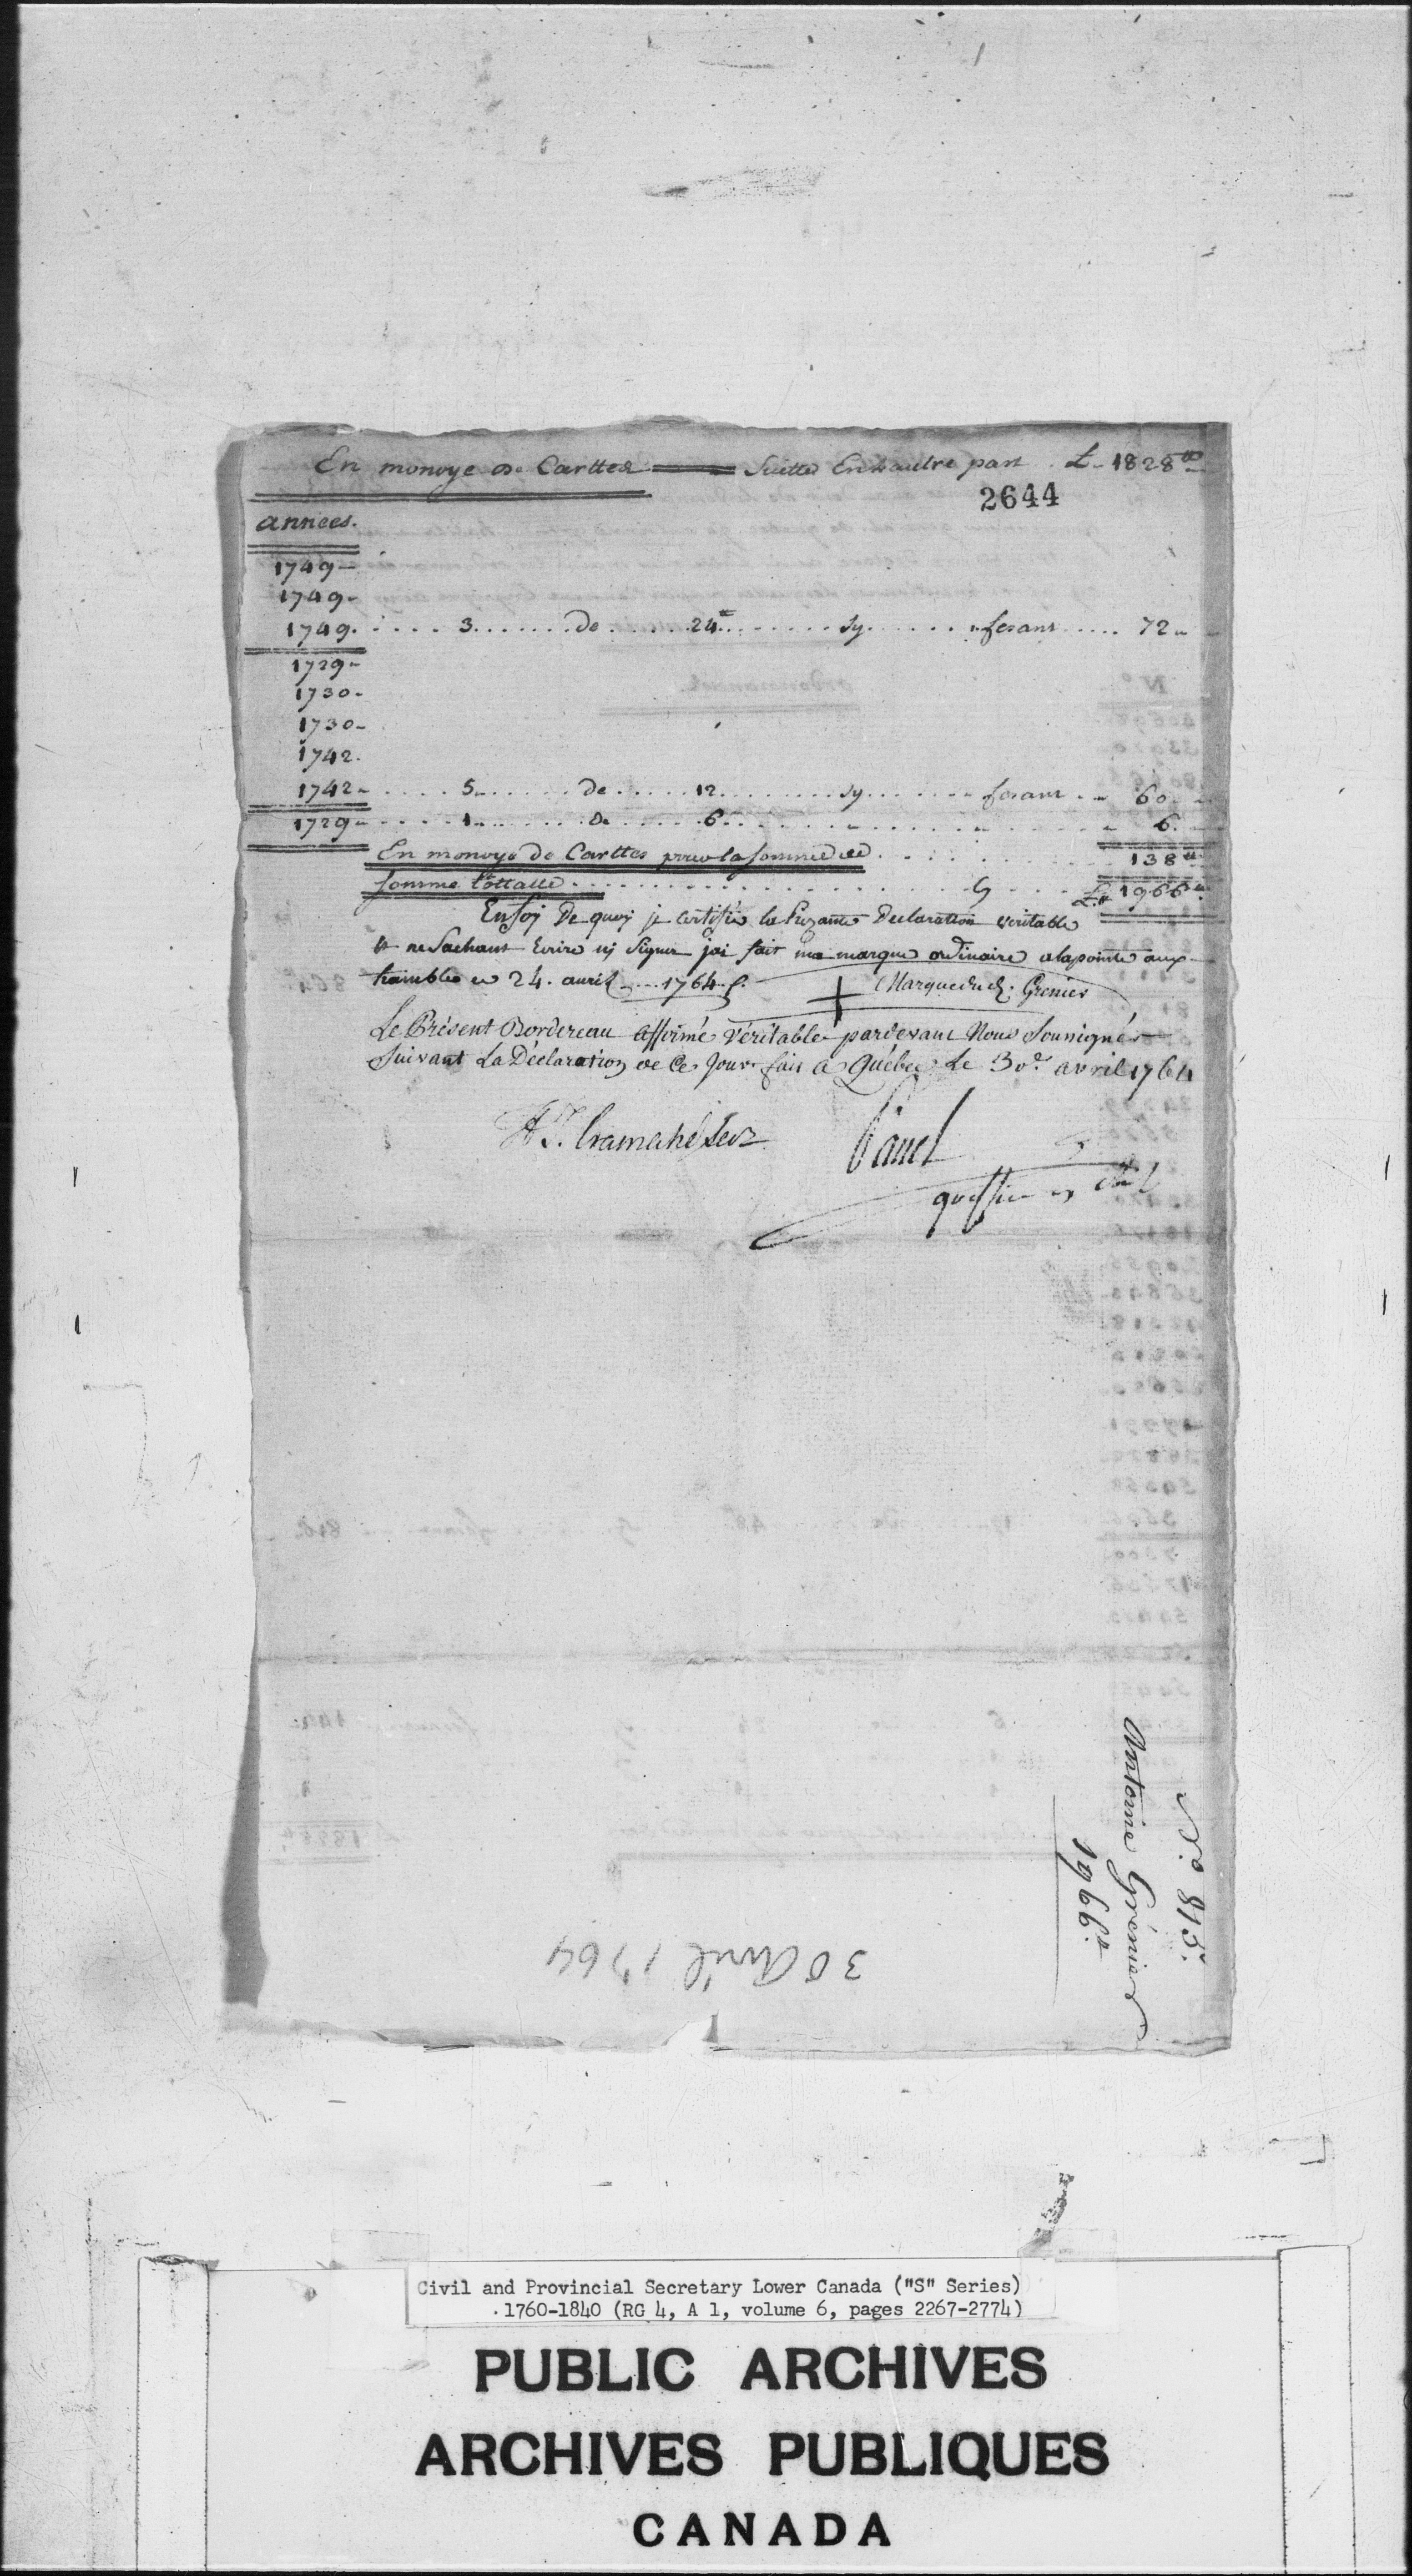 En monoye de Carttes Suitte Enlautre part £ 1828tt
2644
années.
1749-
1749-
1749. 3 de 24tt cy fesant 72-
1729-
1730-
1730-
1742.
1742- 5 de 12 cy fesant 60
1729- 1 de 6 6
En monoye de Carttes pour la somme de 138tt
somme tottalle Cy £ 1966tt
En foj De quoj je certifie la Prezante Declaration veritable
et ne Sachant Ecrire nj Signer jai fait ma marque ordinaire a la pointe aux
trambles ce 24. auril 1764.
+ Marque du d. Grenier
Le Présent Bordereau affirmé véritable pardevant Nous Soussignés
Suivant La Déclaration de Ce Jour. fait a Québec Le 30e. avril 1764
H T. Cramahé Secr
Panet
greffier
No 815.
Antoine Grénier
1966tt
30 Avril 1764
Civil and Provincial Secretary Lower Canada ("S" Series)
1760-1840 (RG 4, A 1, volume 6, pages 2267-2774)
PUBLIC ARCHIVES
ARCHIVES PUBLIQUES
CANADA